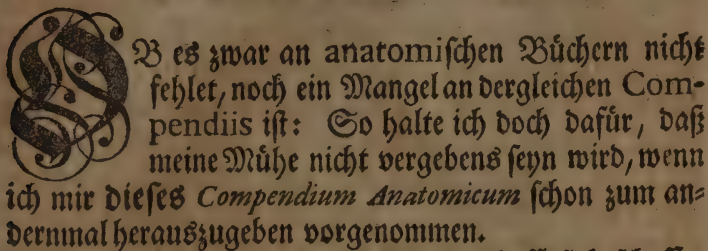 OB es zwar an anatomischen Büchern nicht
fehlet, noch ein Mangel an dergleichen Com-
pendiis ist: So halte ich doch dafür, daß
meine Mühe nicht vergebens seyn wird, wenn
ich mir dieses Compendium Anatomicum schon zum an-
dernmal herauszugeben vorgenommen.